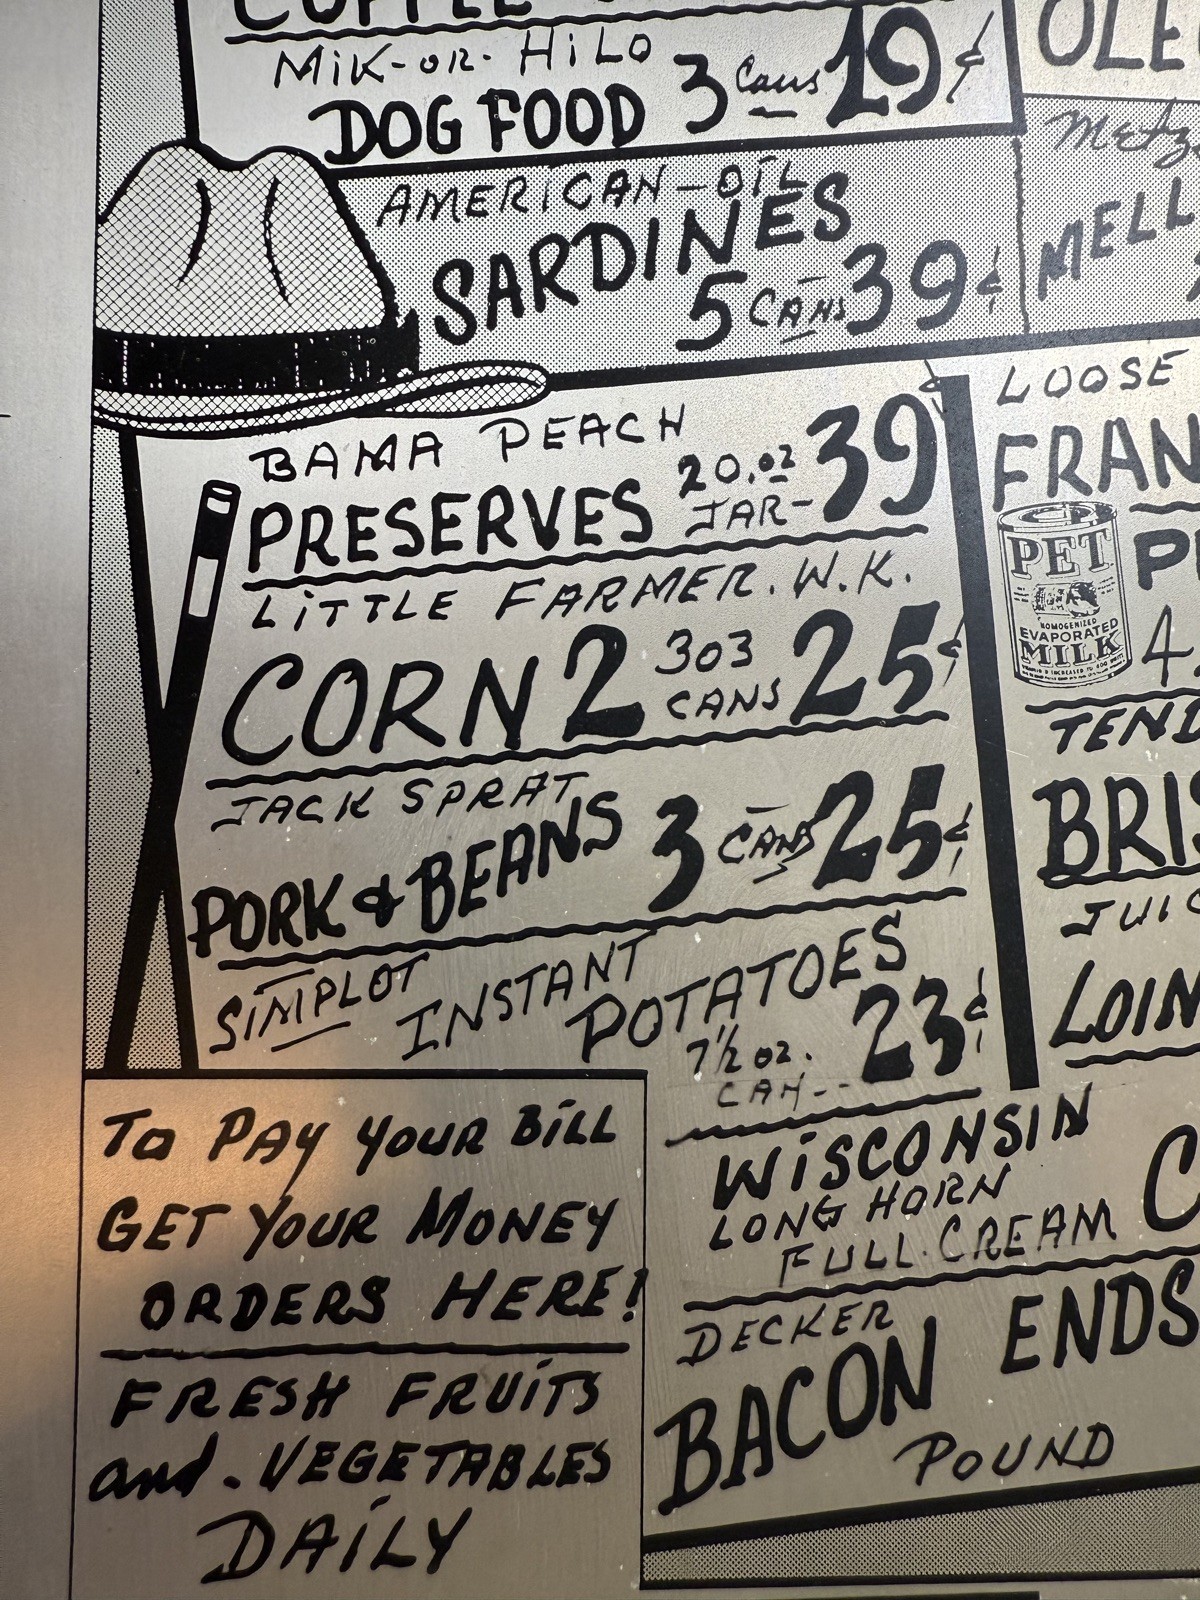 MiK-OR-HiLO
DOG FOOD 3 Cans 19¢
AMERICAN-OIL
SARDINES
5 CANS 39¢
BAMA PEACH
PRESERVES 20.oz JAR- 39¢
LiTTLE FARMER. W.K.
CORN 2 303 CANS 25¢
JACK SPRAT
PORK & BEANS 3 CANS 25¢
SiMPLOT INSTANT
POTATOES
7½ oz. CAN-- 23¢
WiSCONSIN
LONG HORN
FULL.CREAM C
DECKER
BACON ENDS
POUND
To PAY YOUR BiLL
GET YOUR MONEY
ORDERS HERE!
FRESH FRUiTS
and. VEGETABLES
DAiLY
OLE
Metz
MELL
LOOSE
FRAN
PET
HOMOGENIZED
EVAPORATED
MILK
4
TEND
BRIS
JUIC
LOIN